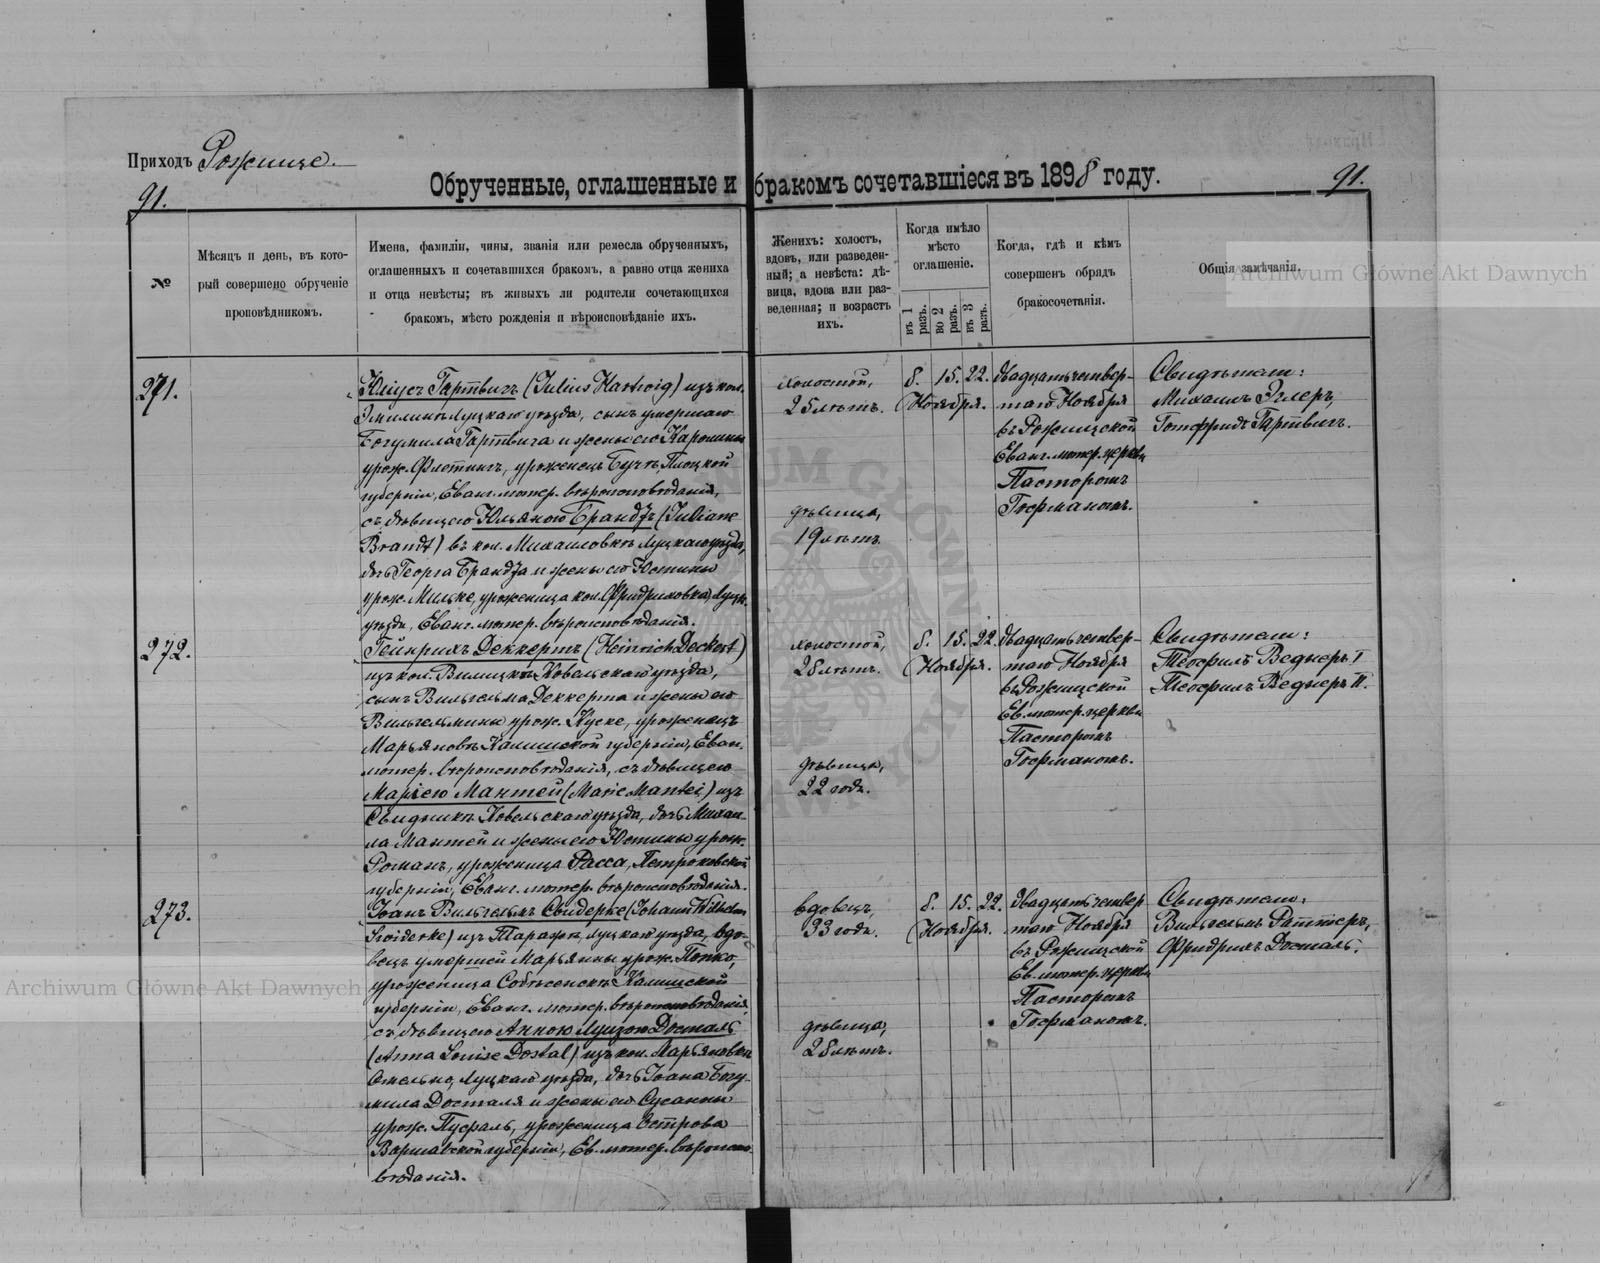 Приходъ Рожище.
Обрученные, оглашенные и бракомъ сочетавшіеся въ 1898 году.
91.
91.
№
Мѣсяцъ и день, въ кото-
рый совершено обрученіе
проповѣдникомъ.
Имена, фамиліи, чины, званія или ремесла обрученныхъ,
оглашенныхъ и сочетавшихся бракомъ, а равно отца жениха
и отца невѣсты; въ живыхъ ли родители сочетающихся
бракомъ, мѣсто рожденія и вѣроисповѣданіе ихъ.
Женихъ: холостъ,
вдовъ, или разведен-
ный; а невѣста: дѣ-
вица, вдова или раз-
веденная; и возрастъ
ихъ.
Когда имѣло
мѣсто
оглашеніе.
въ 1 разъ.
во 2 разъ.
въ 3 разъ.
Когда, гдѣ и кѣмъ
совершенъ обрядъ
бракосочетанія.
Общія замѣчанія.
Archiwum Główne Akt Dawnych
271.
Юліусъ Гартвигъ (Julius Hartwig) изъ кол.
Луцкаго уѣзда, сынъ умершаго
Богумила Гартвига и жены его Каролины
урож. уроженецъ Плоцкой
губерніи, Еванг. лютер. вѣроисповѣданія,
съ дѣвицею Юльяною Брандтъ (Juliane
Brandt) въ кол. Михаиловкѣ Луцкаго уѣзда,
дочь Георга Брандта и жены его Юстины
урож. Мильке, уроженица кол. Фридриховка, Луцк.
уѣзда, Еванг. лютер. вѣроисповѣданія.
холостой,
25 лѣтъ.
дѣвица,
19 лѣтъ.
8. 15. 22.
Ноября.
двадцать четвер-
таго Ноября
въ Рожищской
Еванг. лютер. церкви
Пасторомъ
Германомъ.
Свидѣтели:
Михаилъ Эллеръ,
Готфридъ Гартвигъ.
272.
Гейнрихъ Деккертъ (Heinrich Deckert)
изъ кол. Ковельскаго уѣзда,
сынъ Вильгельма Деккерта и жены его
Вильгельмины урож. Куске, уроженецъ
Марьяновъ Калишской губерніи, Еван.
лютер. вѣроисповѣданія, съ дѣвицею
Маріею Мантей (Marie Mantei) изъ
Свидникъ Ковельскаго уѣзда, дочь Михаи-
ла Мантей и жены его Юстины урож.
Роман, уроженица Расса, Петроковской
губерніи, Еванг. лютер. вѣроисповѣданія.
холостой,
28 лѣтъ.
дѣвица,
22 года.
8. 15. 22.
Ноября.
двадцать четвер-
таго Ноября
въ Рожищской
Ев. лютер. церкви
Пасторомъ
Германомъ.
Свидѣтели:
Теофилъ Веднеръ I
Теофилъ Веднеръ II.
273.
Іоанъ Вильгельмъ Свидерке (Johann Wilhelm
Swiderke) изъ Луцкаго уѣзда, вдо-
вецъ умершей Марьянны урож. Попко,
уроженица Калишской
губерніи, Еванг. лютер. вѣроисповѣданія,
съ дѣвицею Анною Луизою Досталь
(Anna Louise Dostal) изъ кол. Марьяновки
Луцкаго уѣзда, дочь Іоана Богу-
мила Досталя и жены его Сусанны
урож. уроженица Острова
Варшавской губерніи, Ев. лютер. вѣроиспо-
вѣданія.
вдовецъ,
33 года.
дѣвица,
28 лѣтъ.
8. 15. 22.
Ноября.
двадцать четвер
таго Ноября
въ Рожищской
Ев. лютер. церкви
Пасторомъ
Германомъ.
Свидѣтели:
Вильгельмъ Раттеръ,
Фридрихъ Досталь.
Archiwum Główne Akt Dawnych